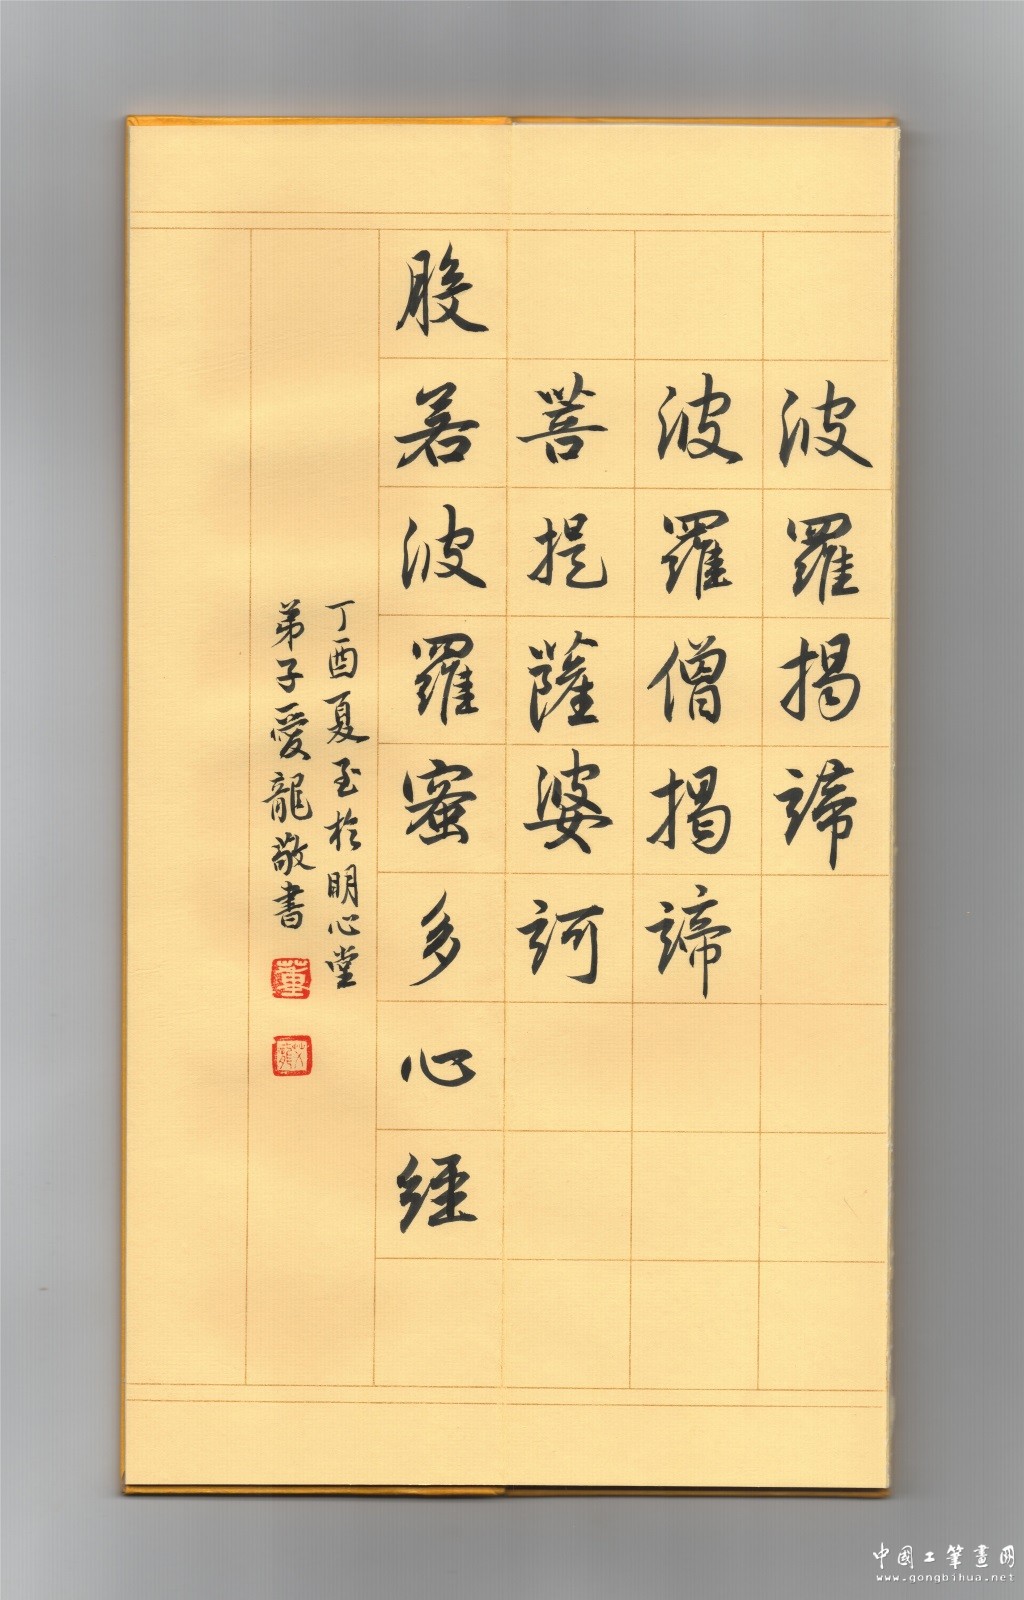 波羅揭諦
波羅僧揭諦
菩提薩婆訶
般若波羅蜜多心經
丁酉夏至於明心堂
弟子愛龍敬書
董
艾龍
中國工筆畫网
www.gongbihua.net